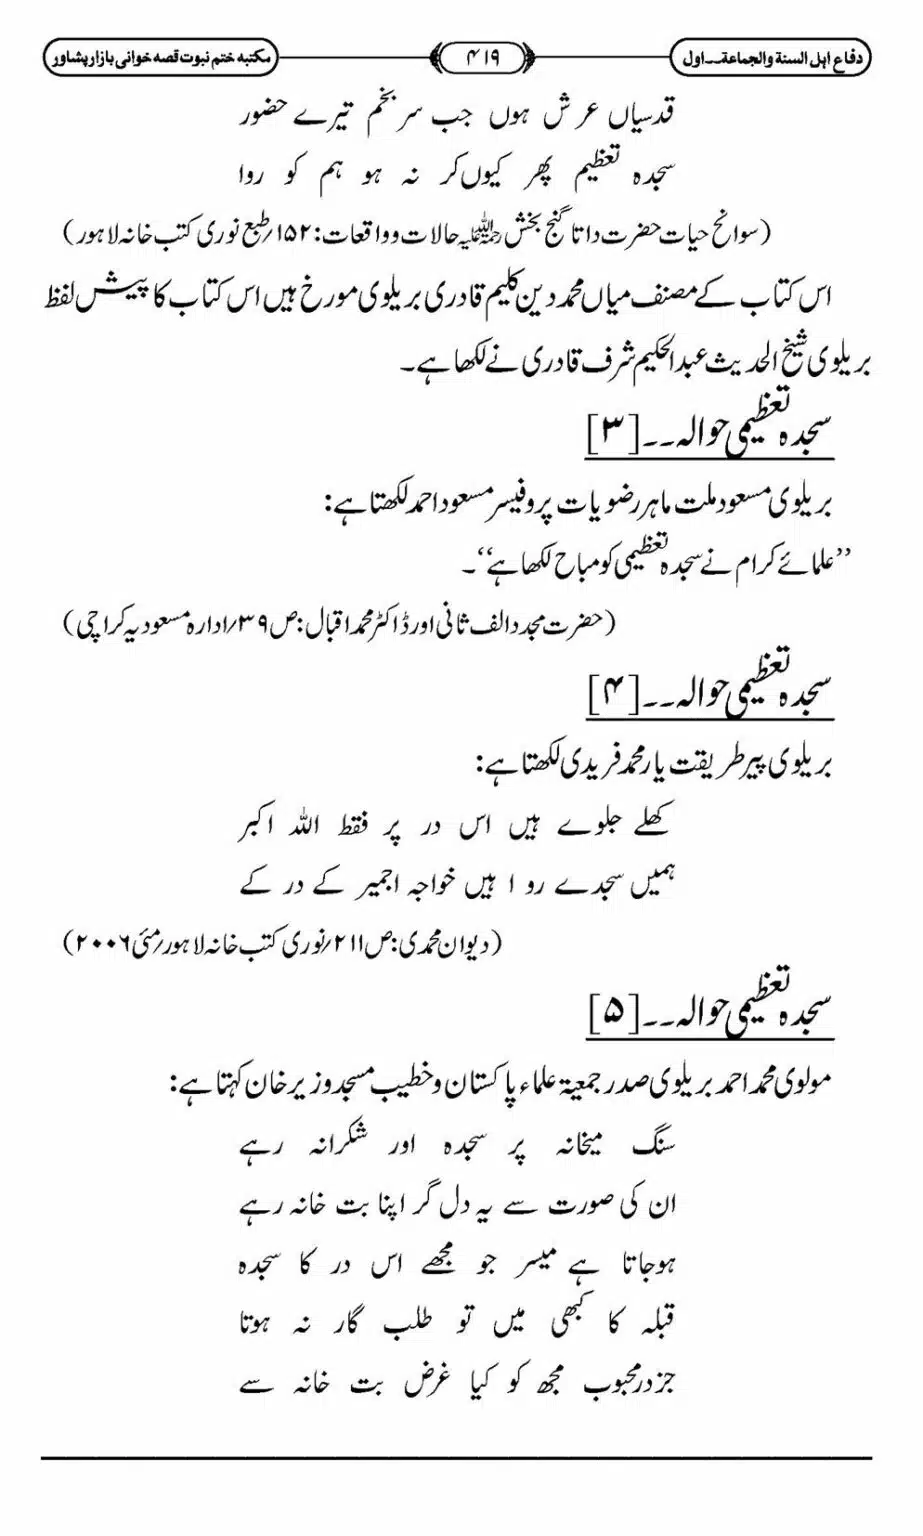 دفاع اہل السنة والجماعة۔۔اول
۴۱۹
مکتبہ ختم نبوت قصہ خوانی بازار پشاور
قدسیاں عرش ہوں جب سربخم تیرے حضور
سجدہ تعظیم پھر کیوں کر نہ ہو ہم کو روا
(سوانح حیات حضرت داتا گنج بخش رحمۃ اللہ علیہ حالات و واقعات: ۱۵۲/طبع نوری کتب خانہ لاہور)
اس کتاب کے مصنف میاں محمد دین کلیم قادری بریلوی مورخ ہیں اس کتاب کا پیش لفظ
بریلوی شیخ الحدیث عبدالحکیم شرف قادری نے لکھا ہے۔
سجدہ تعظیمی حوالہ۔۔[۳]
بریلوی مسعود ملت ماہر رضویات پروفیسر مسعود احمد لکھتا ہے:
”علمائے کرام نے سجدہ تعظیمی کو مباح لکھا ہے“۔
(حضرت مجدد الف ثانی اور ڈاکٹر محمد اقبال: ص۳۹/ادارہ مسعودیہ کراچی)
سجدہ تعظیمی حوالہ۔۔[۴]
بریلوی پیر طریقت یار محمد فریدی لکھتا ہے:
کھلے جلوے ہیں اس در پر فقط اللہ اکبر
ہمیں سجدے رو ا ہیں خواجہ اجمیر کے در کے
(دیوان محمدی: ص۲۱۱/نوری کتب خانہ لاہور/مئی ۲۰۰۶)
سجدہ تعظیمی حوالہ۔۔[۵]
مولوی محمد احمد بریلوی صدر جمعیۃ علماء پاکستان و خطیب مسجد وزیر خان کہتا ہے:
سنگ میخانہ پر سجدہ اور شکرانہ رہے
ان کی صورت سے یہ دل گر اپنا بت خانہ رہے
ہوجاتا ہے میسر جو مجھے اس در کا سجدہ
قبلہ کا کبھی میں تو طلب گار نہ ہوتا
جز در محبوب مجھ کو کیا غرض بت خانہ سے